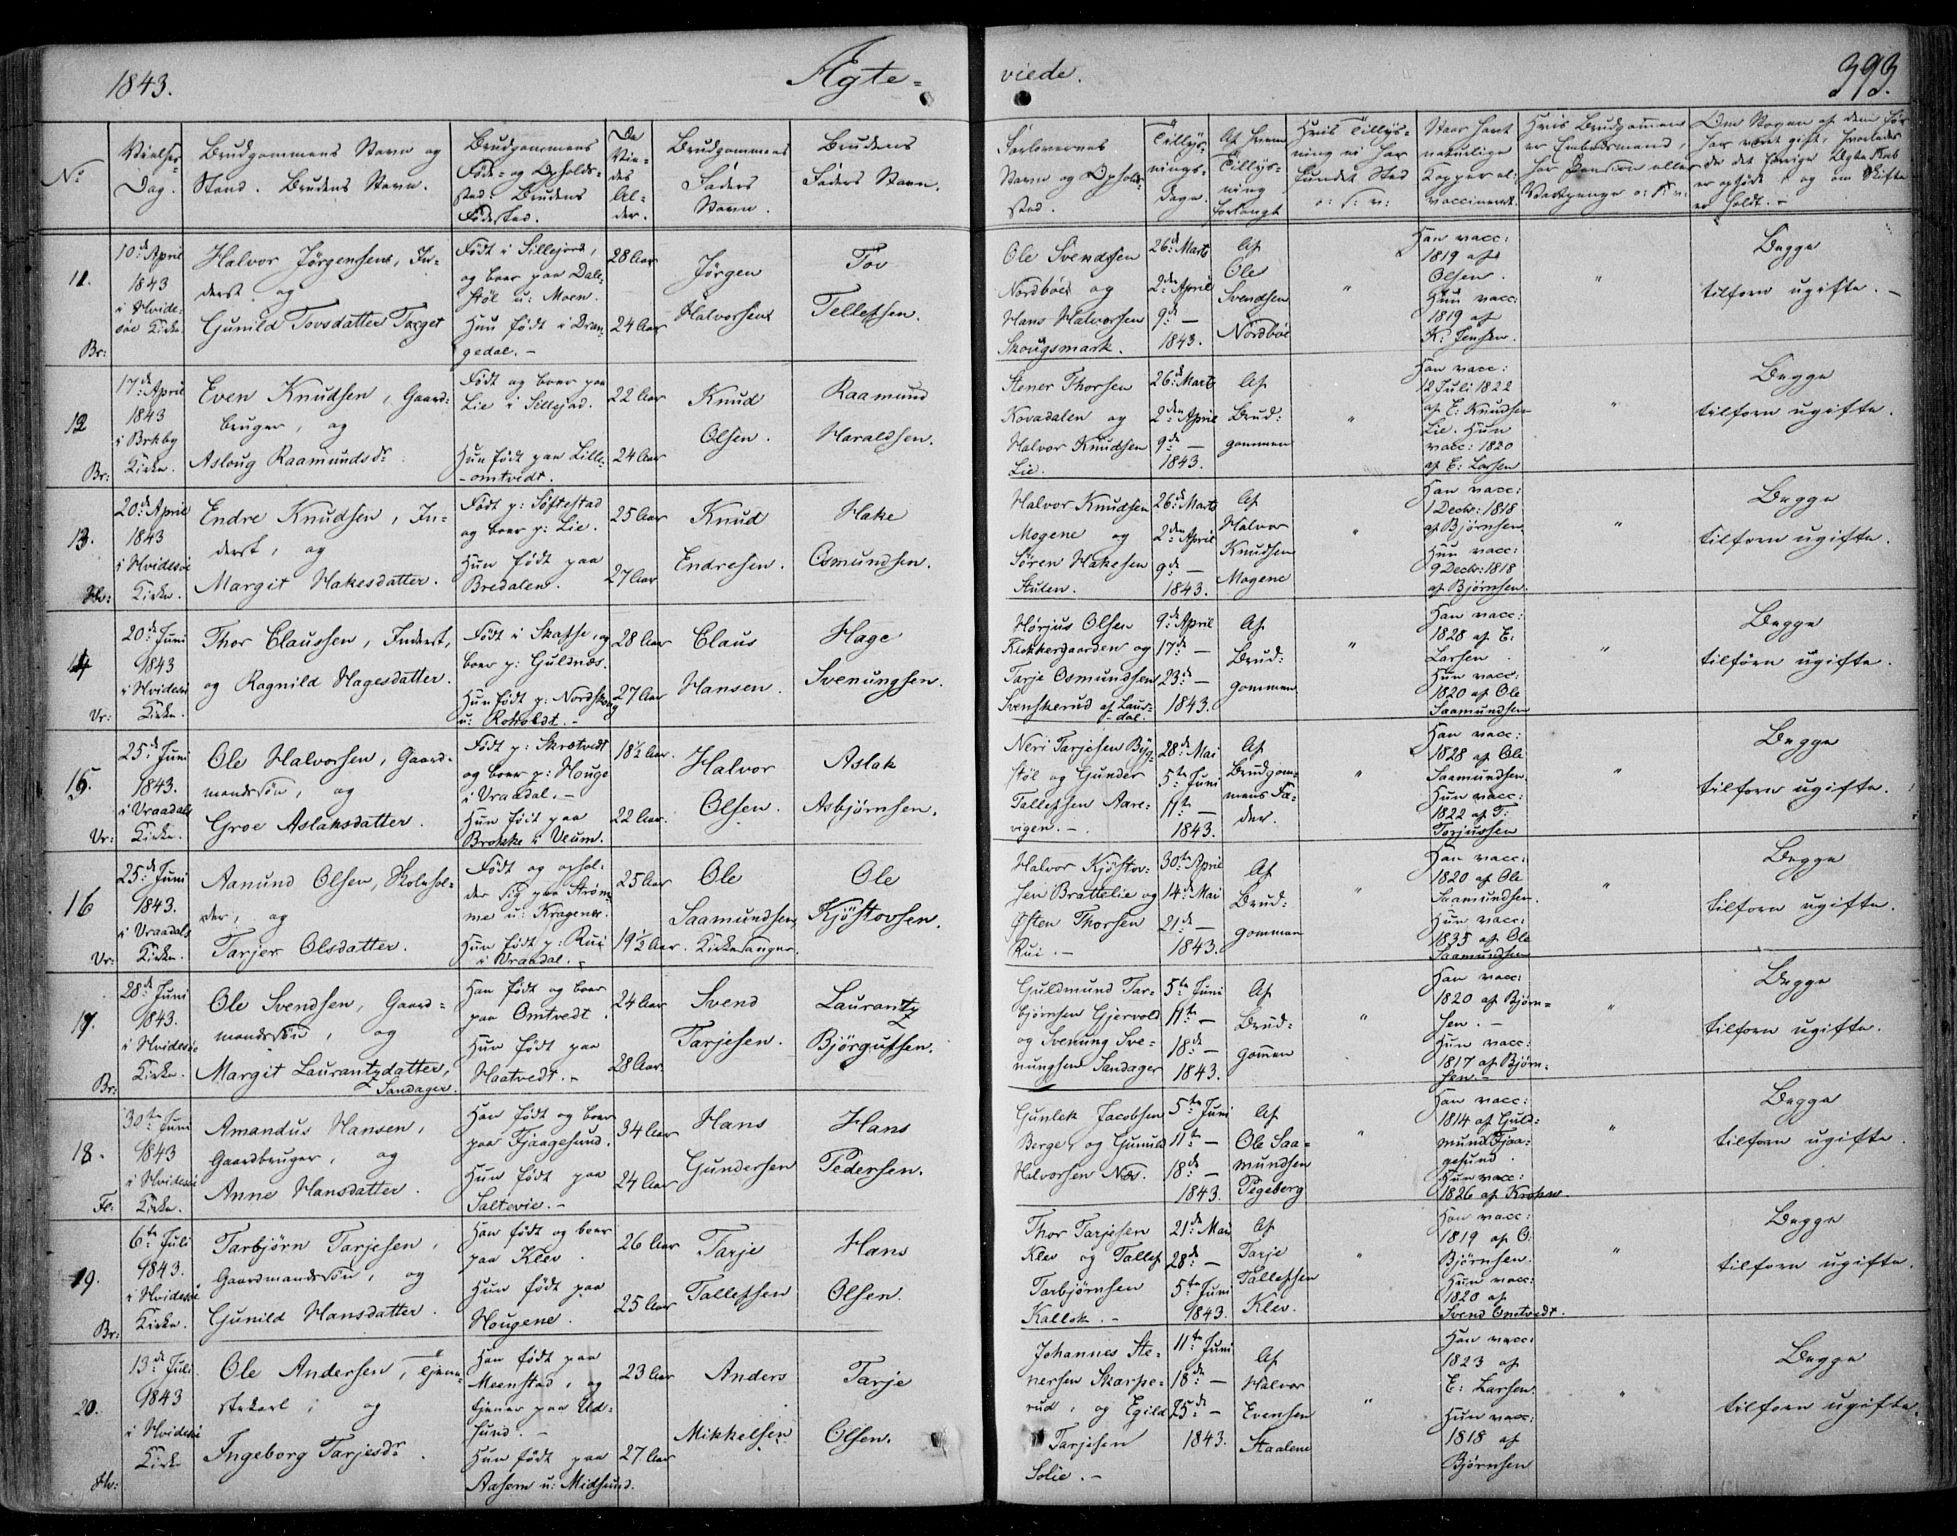 1843.
Ægte-
viede.
393.
No
Vielses-
Dag.
Brudgommens Navn og
Stand. Brudens Navn.
Brudgommens
Føde- og Opholds-
sted. Brudens
Fødested.
De
Vie-
des
Al-
der.
Brudgommens
Faders
Navn.
Brudens
Faders Navn.
Forlovernes
Navn og Ophold-
sted.
Tillys-
nings-
Dage.
Af hvem
Tillys-
ning
forlangt
Hvis Tillys-
ning ei har
fundet Sted
o: s: v:
Naar havt
naturlige
Kopper el:
vaccineret.
Hvis Brudgommen
er Embedsmand,
har Pension eller
Vartpenge o: s: v:
Om Nogen af dem før
har været gift, hvorledes
da det forrige Ægteskab
er ophørt, og om Skifte
er holdt.-
11.
Br:
10de April
1843
i Hvide-
søe Kirke
Halvor Jørgensen, In-
derst og
Gunild Tovsdatter Tveget
Født i Sillejord,
og boer paa Dale-
støl u: Moen.
Hun født i Dran-
gedal.-
28 Aar
24 Aar
Jørgen
Halvorsen
Tov
Tellefsen.
Ole Svendsen
Nordbøe og
Hans Halvorsen
Skougsmark.
26de Marts
2den April
9de —
1843.
Af
Ole
Svendsen
Nordbøe
"
Han vacc:
1819 af
Olsen.
Hun vacc:
1819 af
K: Jensen.
"
Begge
tilforn ugifte.-
12
Br:
17de April
1843
i Brkby
Kirke.
Even Knudsen, Gaard-
bruger, og
Asloug Raamundsdr
Født og boer paa
Lie i Sillejord.
Hun født paa Lille-
omtvedt.
22 Aar
24 Aar
Knud
Olsen.
Raamund
Haraldsen.
Stener Thorsen
Kovadalen og
Halvor Knudsen
Lie.
26de Marts
2den April
9de —
1843.
Af
Brud-
gommen
"
Han vacc:
12 Juli 1822
af E: Knudsen
Lie. Hun
vacc: 1820
af E: Larsen
"
Begge
tilforn ugifte.
13.
20de April
1843
i Hvidesøe
Kirke.
Endre Knudsen, In-
derst, og
Margit Hakesdatter.
Født p: Søftestad
og boer p: Lie.
Hun født paa
Bredalen.
25 Aar
27 Aar
Knud
Endresen.
Hake
Osmundsen.
Halvor Knudsen
Mogene og
Søren Hakesen
Stulen.
26de Marts
2den April
9de —
1843.
Af
Halvor
Knudsen
Mogene
"
Han vacc:
1 Decbr: 1818
af Bjørnsen
Hun vacc:
9 Decbr: 1818
af Bjørnsen.
"
Begge
tilforn ugifte.
14
Vr:
20de Juni
1843
i Hvidesøe
Kirke.
Thor Claussen, Inderst,
og Ragnild Hagesdatter.
Født i Skafse, og
boer p: Guldnæs.
Hun født p: Nordskoug
u: Rotholdt.-
28 Aar
27 Aar
Claus
Hansen.
Hage
Svenungsen.
Hørjus Olsen
Klokkergaarden og
Tarje Osmundsen
Svenskerud af Laur-
dal.
9de April
17de —
23de —
1843.
Af
Brud-
gommen
"
Han vacc:
1828 af E:
Larsen.
Hun vacc:
1820 af Ole
Saamundsen
"
Begge
tilforn ugifte.
15.
Vr:
25de Juni
1843.
i Vraadals
Kirke.
Ole Halvorsen, Gaard-
mandssøn, og
Groe Aslaksdatter.
Født p: Skrotvedt
og boer p: Houge
i Vraadal.-
Hun født paa
Brokke i Veum.
18½ Aar.
22 Aar.
Halvor
Olsen.
Aslak
Asbjørnsen.
Neri Tarjesen Byg-
støl og Gunder
Tallefsen Aare-
vigen.-
28de Mai
5te Juni
11te —
1843.
Af
Brudgom-
mens Fa-
der.
"
Han vacc:
1828 af Ole
Saamundsen.
Hun vacc:
1822 af T:
Torjussen
"
Begge
tilforn ugifte.
16
Vr:
25de Juni
1843.
i Vraadals
Kirke.
Aanund Olsen, Skolehol-
der, og
Tarjer Olsdatter.
Født og ophol-
der sig paa Strøm-
me u: Kragenes.
Hun født p: Rui
i Vraadal.-
25 Aar
19½ Aar.
Ole
Saamundsen,
Kirkesanger.
Ole
Kjøstovsen.
Halvor Kjøstov-
sen Brattelie og
Østen Thorsen
Rui.-
30te April
14de Mai
21de —
1843.
Af
Brud-
gommen
"
Han vacc:
1820 af Ole
Saamundsen.
Hun vacc:
1835 af Ole
Saamundsen
"
Begge
tilforn ugifte.
17.
Br:
28de Juni
1843.
i Hvidesøe
Kirke.
Ole Svendsen, Gaard-
mandssøn, og
Margit Laurantzdatter,
Sandager.
Han født og boer
paa Omtvedt.
Hun født paa
Haatvedt.-
24 Aar
28 Aar.
Svend
Tarjesen.
Laurantz
Bjørgufsen.
Guldmund Tar-
bjørnsen Gjervold
og Svenung Sve-
nungsen Sandager
5te Juni
11te —
18de —
1843.
Af
Brud-
gommen
"
Han vacc:
1820 af Bjørn-
sen.-
Hun vacc:
1817 af Bjørn-
sen.-
"
Begge
tilforn ugifte.
18.
Fl:
30te Juni
1843
i Hvidesøe
Kirke.
Amandus Hansen,
Gaardbruger, og
Anne Hansdatter.
Han født og boer
paa Fjaagesund.
Hun født paa
Saltevie.-
34 Aar
24 Aar
Hans
Gundersen
Hans
Pedersen.
Gunlek Jacobsen
Berge, og Gunuld
Halvorsen Næs.
5te Juni
11te —
18de —
1843.
Af
Ole Saa-
mundsen
Pegeberg
"
Han vacc:
1814 af Guld-
mund Fjaa-
gesund.
Hun vacc:
1826 af Krohn.
"
Begge
tilforn ugifte.
19.
Br:
6te Juli
1843.
i Hvidesøe
Kirke.
Tarbjørn Tarjesen,
Gaardmandssøn, og
Gunild Hansdatter.
Han født og boer
paa Klev.
Hun født paa
Hougene.
26 Aar
25 Aar
Tarje
Tallefsen
Hans
Olsen.
Thor Tarjesen
Klev og Tallef
Tarbjørnsen
Kallok.-
21de Mai
28de —
5te Juni
1843.
Af
Tarje
Tallefsen
Klev.
"
Han vacc:
1819 af O:
Bjørnsen.
Hun vacc:
1820 af
Svend Omtvedt.
"
Begge
tilforn ugifte.
20.
13de Juli
1843
i Hvidesøe
Kirke
Ole Andersen, Tjene-
stekarl, og
Ingeborg Tarjesdr.
Han født paa
Meenstad, og
tjener paa Ud-
sund.-
Hun født paa
Aasern u: Midsund.
23 Aar
27 Aar
Anders
Mikkelsen
Tarje
Olsen.
Johannes Ste-
nersen Skarpe-
rud, og Egild
Tarjesen
Solie.-
11te Juni
18de —
25de —
1843.
Af
Halvor
Evensen
Staalene
"
Han vacc:
1823 af
E: Larsen.
Hun vacc:
1818 af
Bjørnsen
"
Begge
tilforn ugifte.